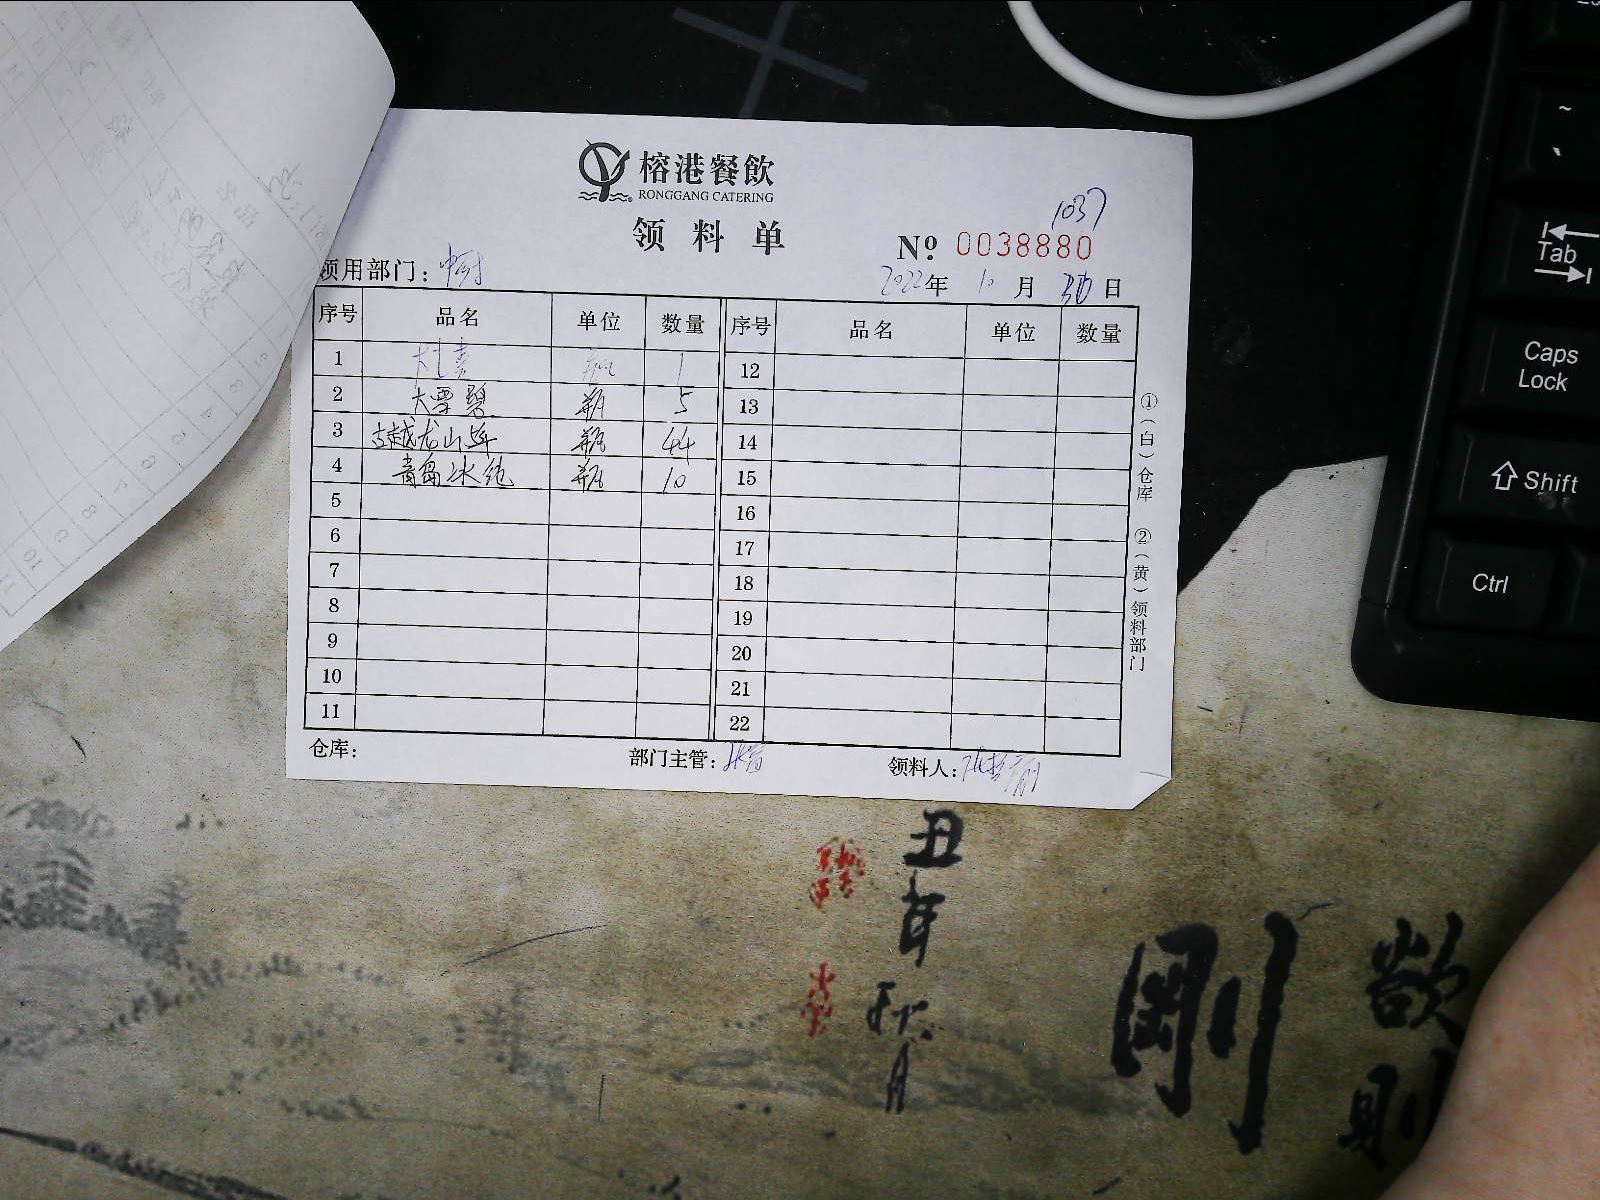 榕港餐飲
RONGGANG CATERING
领料单
1037
№ 0038880
领用部门：中厨
2022年 10月 30日
序号 品名 单位 数量 序号 品名 单位 数量
1 瓶 1 12
2 大雪碧 瓶 5 13
3 古越龙山5年 瓶 44 14
4 青岛冰纯 瓶 10 15
5 16
6 17
7 18
8 19
9 20
10 21
11 22
仓库： 部门主管： 领料人：
①（白）仓库 ②（黄）领料部门
Tab
Caps
Lock
Shift
Ctrl
丑年秋月
剛
欲
則